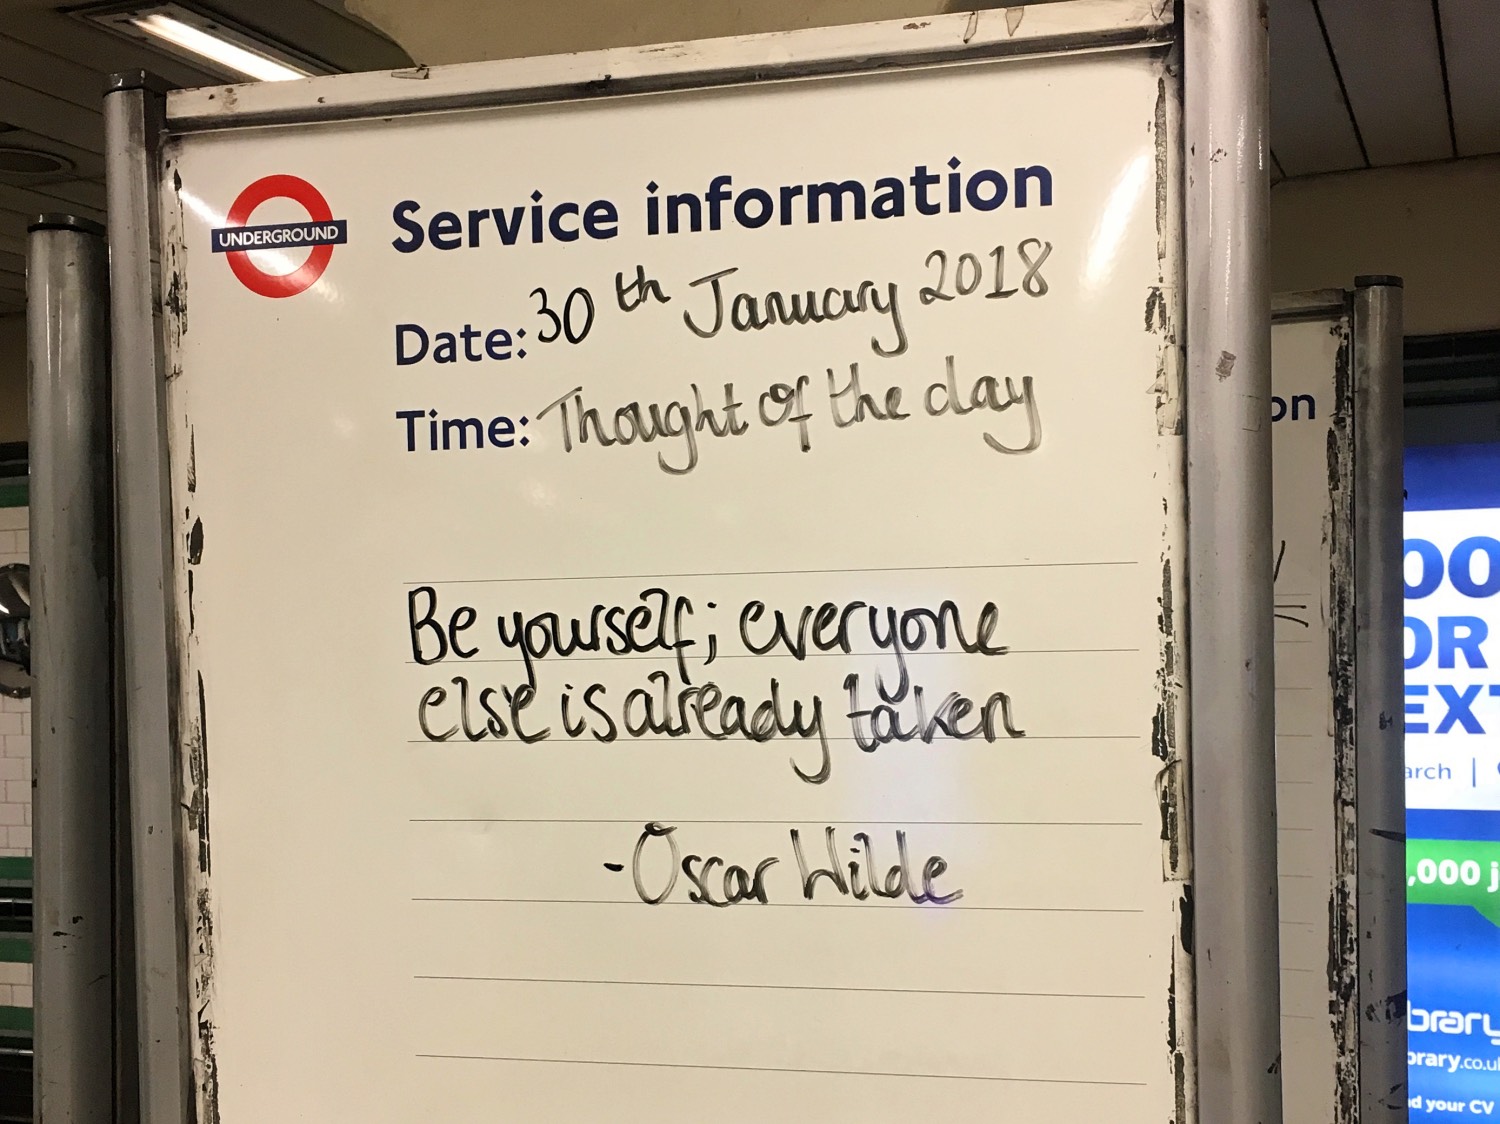 UNDERGROUND
Service information
Date: 30th January 2018
Time: Thought of the day
Be yourself; everyone
else is already taken
-Oscar Wilde
on
OR
,000 j
brary
brary.co.u
your CV